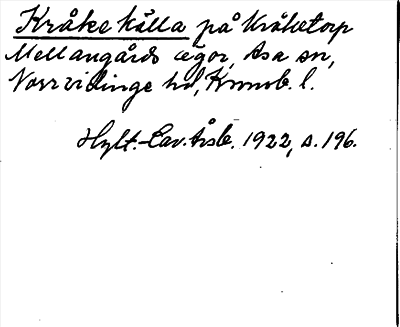 Kråke källa på Kråketorp
Mellangårds ägor, Asa sn,
Norrvidinge hd, Kronob. l.
Hylt.-Cav. Årsb. 1922, s. 196.